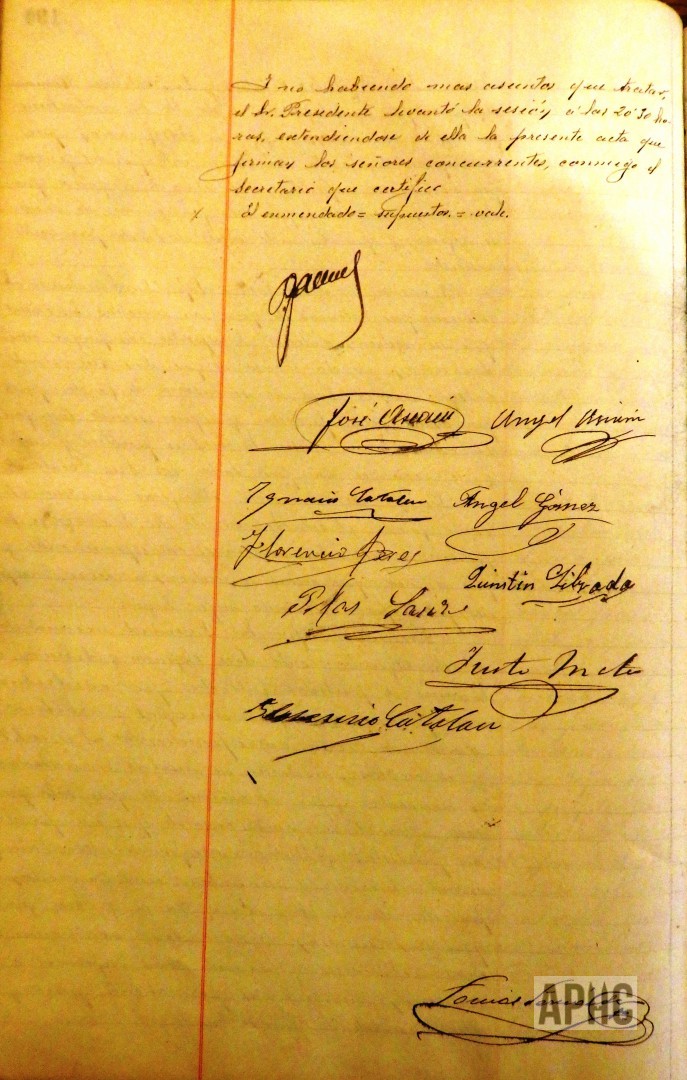 I no habiendo mas asuntos que tratar,
el Sr. Presidente levantó la sesión á las 20'30 ho-
ras, extendiendose de ella la presente acta que
firman los señores concurrentes, conmigo el
Secretario que certifico
El enmendado = supuestos. = vale.
José Ascain Angel Asiain
Ignacio Catalan Angel Gómez
Florencio Perez
Quintin Librada
Blas
Justo
Catalan
Tomas
APHC